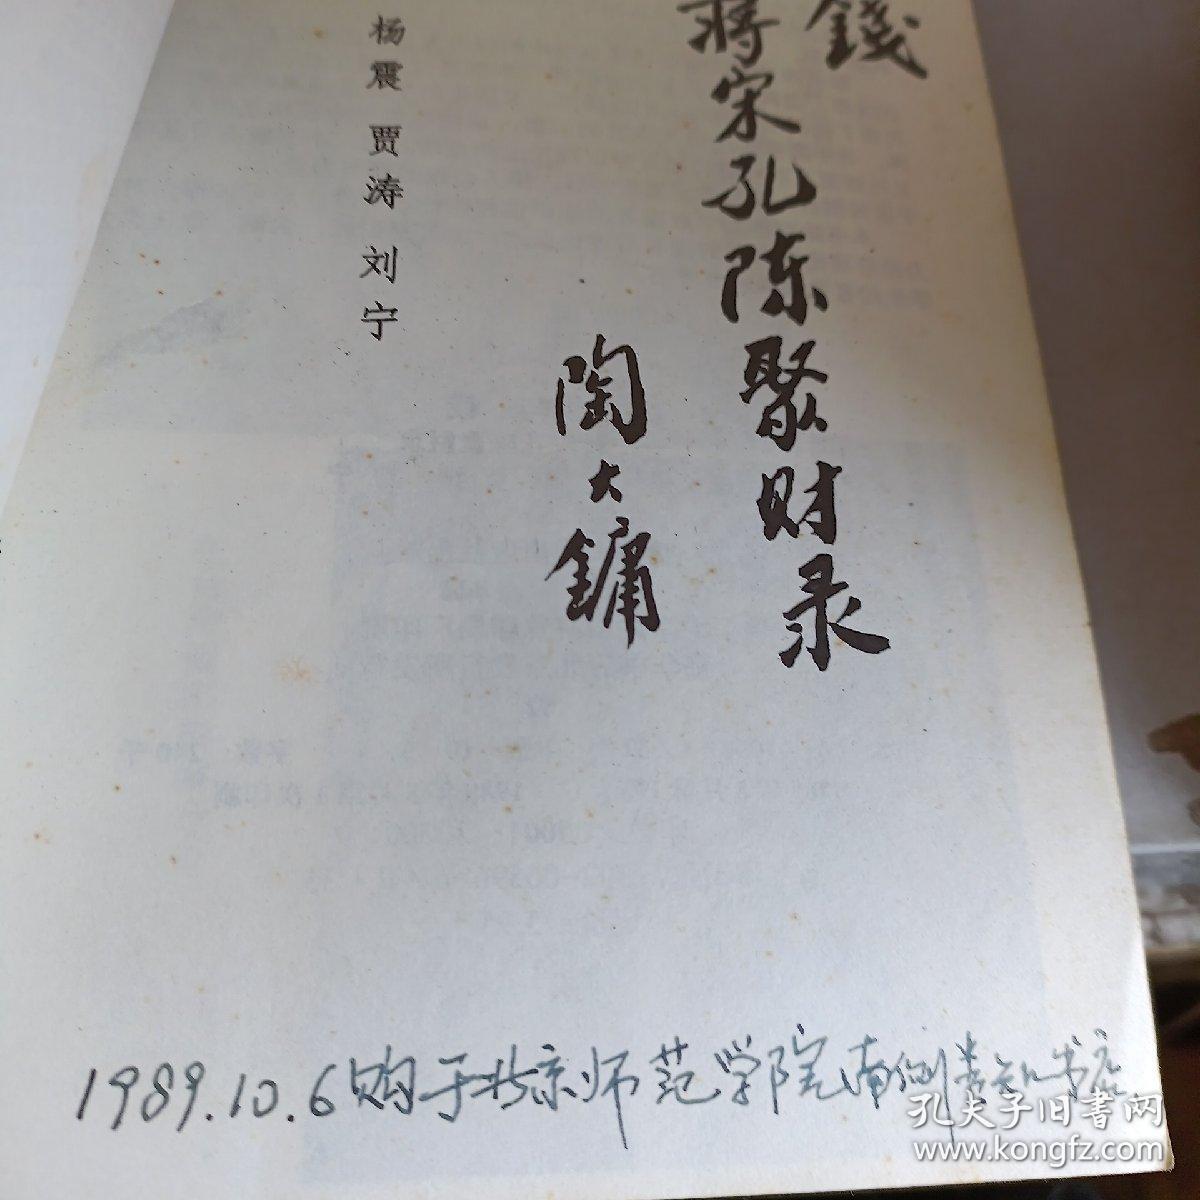 錢
蒋宋孔陈聚财录
陶大镛
杨震 贾涛 刘宁
1989.10.6购于北京师范学院南侧书店
孔夫子旧书网
www.kongfz.com